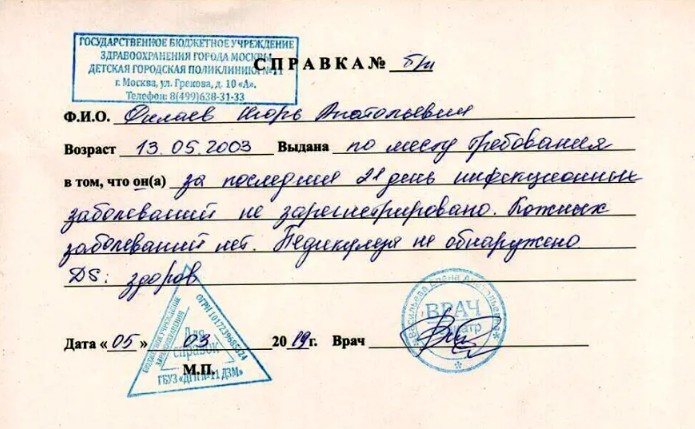 ГОСУДАРСТВЕННОЕ БЮДЖЕТНОЕ УЧРЕЖДЕНИЕ
ЗДРАВООХРАНЕНИЯ ГОРОДА МОСКВЫ
ДЕТСКАЯ ГОРОДСКАЯ ПОЛИКЛИНИКА №11
г. Москва, ул. Грекова, д. 10 «А».
Телефон: 8(499)638-31-33
СПРАВКА № б/н
Ф.И.О. Филаев Игорь Анатольевич
Возраст 13.05.2003 Выдана по месту требования
в том, что он(а) за последние 21 день инфекционных
заболеваний не зарегистрировано. Кожных
заболеваний нет. Педикулеза не обнаружено
DS: здоров
Дата «05» 03 2019г. Врач
М.П.
БЮДЖЕТНОЕ УЧРЕЖДЕНИЕ
ЗДРАВООХРАНЕНИЯ
Для
справок
ГБУЗ «ДГП №11 ДЗМ»
ВРАЧ